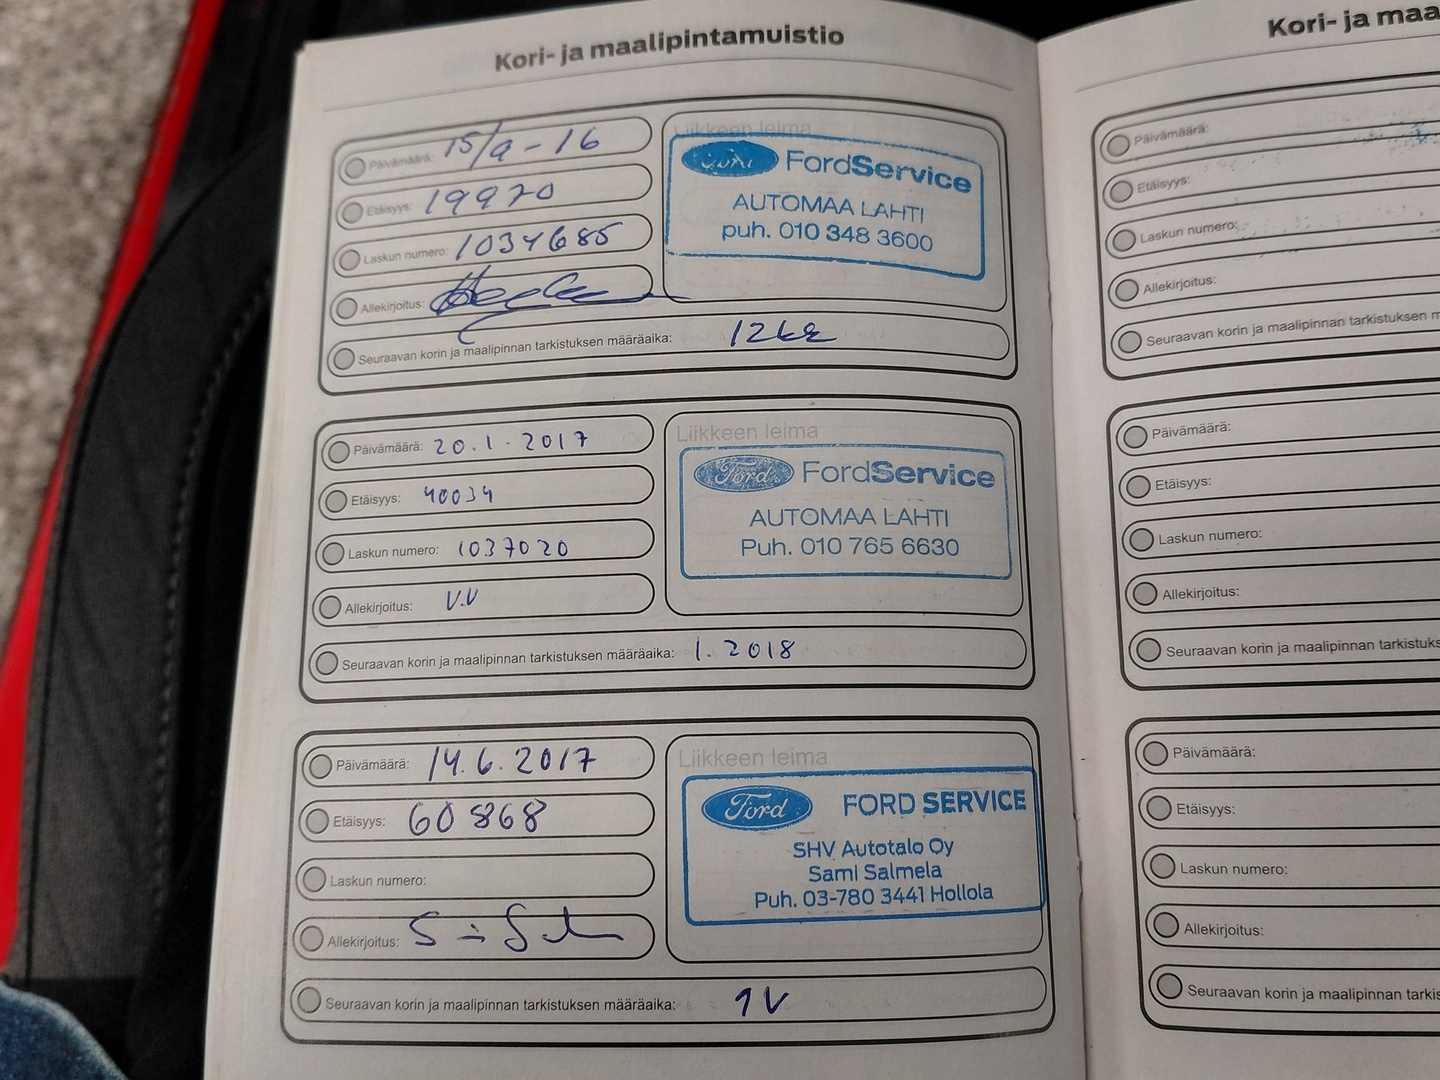 Kori- ja maalipintamuistio
Päivämäärä: 15/9-16
Etäisyys: 19970
Laskun numero: 1034685
Allekirjoitus:
Seuraavan korin ja maalipinnan tarkistuksen määräaika: 12kk
Liikkeen leima
Ford FordService
AUTOMAA LAHTI
puh. 010 348 3600
Päivämäärä: 20.1.2017
Etäisyys: 40034
Laskun numero: 1037020
Allekirjoitus: V.V
Seuraavan korin ja maalipinnan tarkistuksen määräaika: 1.2018
Liikkeen leima
Ford FordService
AUTOMAA LAHTI
Puh. 010 765 6630
Päivämäärä: 14.6.2017
Etäisyys: 60868
Laskun numero:
Allekirjoitus:
Seuraavan korin ja maalipinnan tarkistuksen määräaika: 1V
Liikkeen leima
Ford FORD SERVICE
SHV Autotalo Oy
Sami Salmela
Puh. 03-780 3441 Hollola
Kori- ja maa
Päivämäärä:
Etäisyys:
Laskun numero:
Allekirjoitus:
Seuraavan korin ja maalipinnan tarkistuksen m
Päivämäärä:
Etäisyys:
Laskun numero:
Allekirjoitus:
Seuraavan korin ja maalipinnan tarkistuks
Päivämäärä:
Etäisyys:
Laskun numero:
Allekirjoitus:
Seuraavan korin ja maalipinnan tarkis